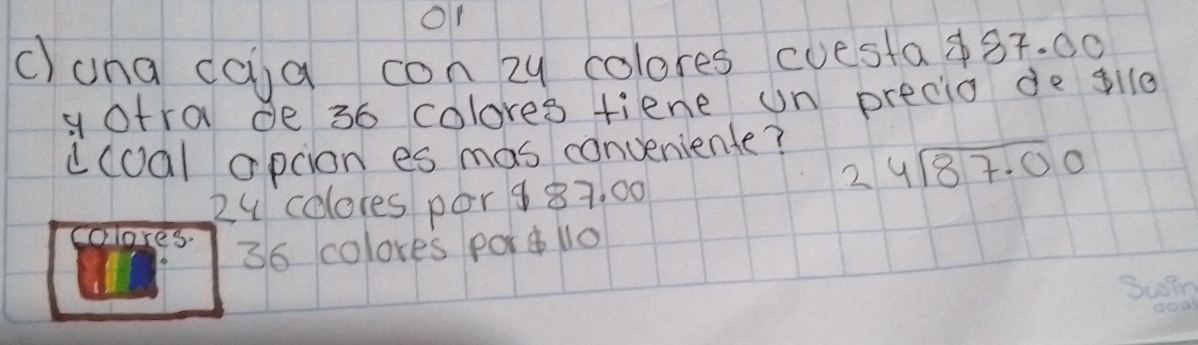 01
c) una caja con 24 colores cuesta $87.00
y otra de 36 colores tiene un precio de $110
¿cual opcion es mas conveniente?
24 colores por $87.00
24√87.00
colores.
36 colores por $110